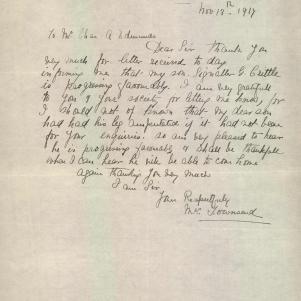 Nov 12th 1917
To Mr Chas A
Dear Sir Thank you
very much for letter received to day
informing me that my son Signaller G Cuttle
is progressing favourably. I am very grateful
to you & your society for letting me know, for
I should not of known that my dear son
had had his leg amputated if it had not been
for your enquiries. so am very pleased to hear
he is progressing favourably & shall be thankful
when I can hear he will be able to come home
again thanking you very much
I am Sir
Yours Respectfully
Mrs Townsend